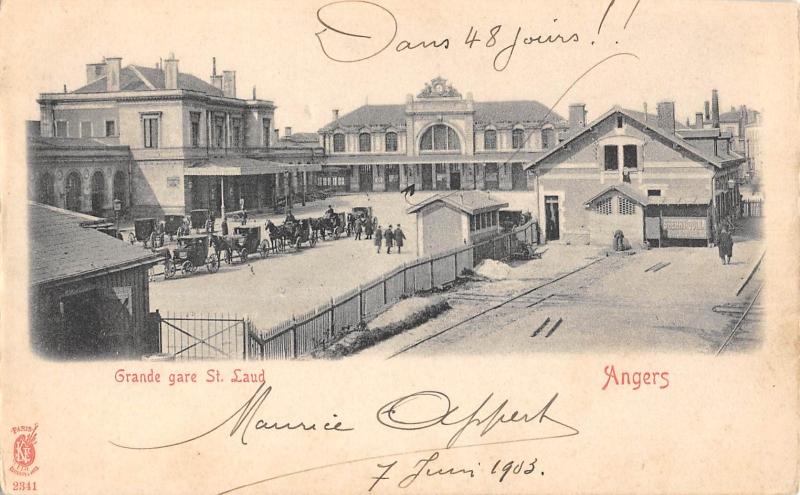 Dans 48 jours !!
Grande gare St. Laud
Angers
Maurice Appert
7 Juni 1903.
PARIS
2341